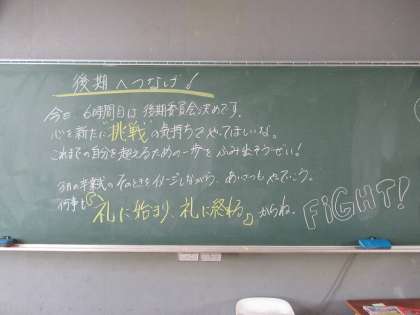 後期へつなげ!
今日 6時間目は後期委員会決めです。
心を新たに挑戦の気持ちでやってほしいな。
これまでの自分を超えるための一歩をふみ出そうぜい!
3月の卒業式のそのときをイメージしながら、あいさつもやっていこう。
何事も「礼に始まり、礼に終わる」からね。
FiGHT!